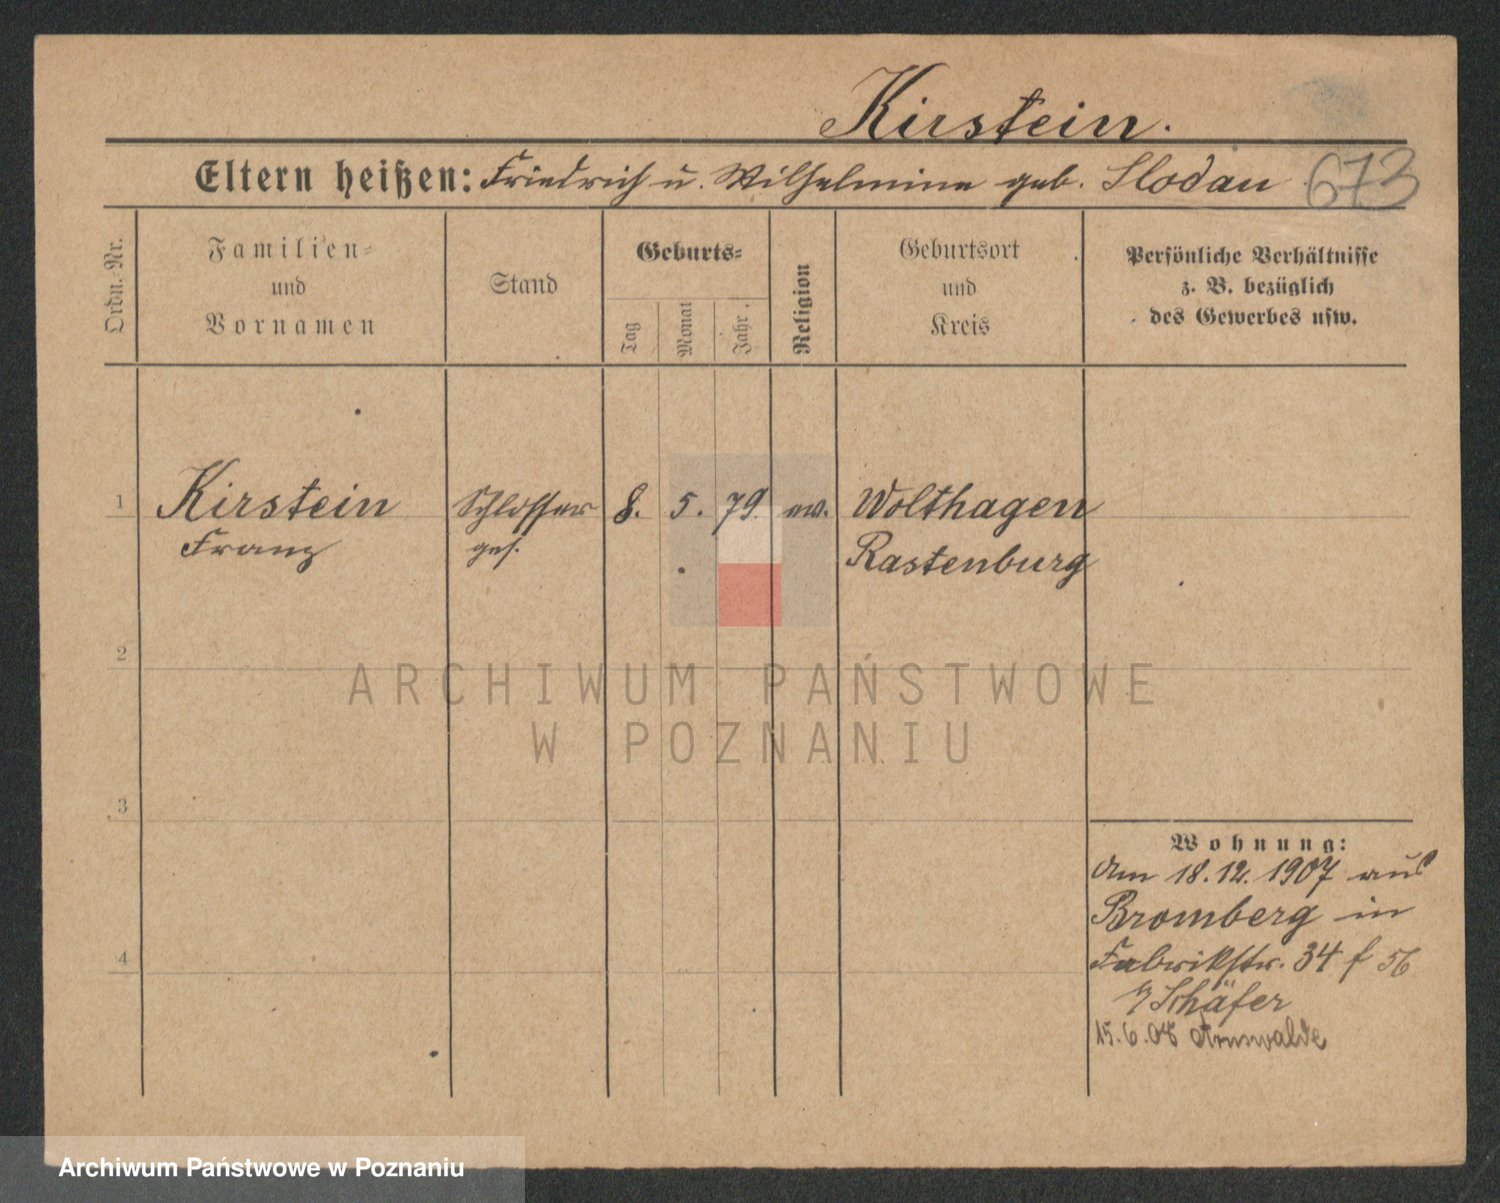 Kirstein.
Eltern heißen: Friedrich u. Wilhelmine geb. Slodau
673
Ordn.-Nr.
Familien-
und
Vornamen
Stand
Geburts-
Tag
Monat
Jahr.
Religion
Geburtsort
und
Kreis
Persönliche Verhältnisse
z. B. bezüglich
des Gewerbes usw.
1 Kirstein Schlosser 8. 5. 79. ev. Wolthagen
Franz ges. Rastenburg
2
ARCHIWUM PAŃSTWOWE
W POZNANIU
3
Wohnung:
Am 18.12.1907 aus
Bromberg in
Fabrikstr. 34 f 56
4
Schäfer
15.6.08 Arnswalde
Archiwum Państwowe w Poznaniu